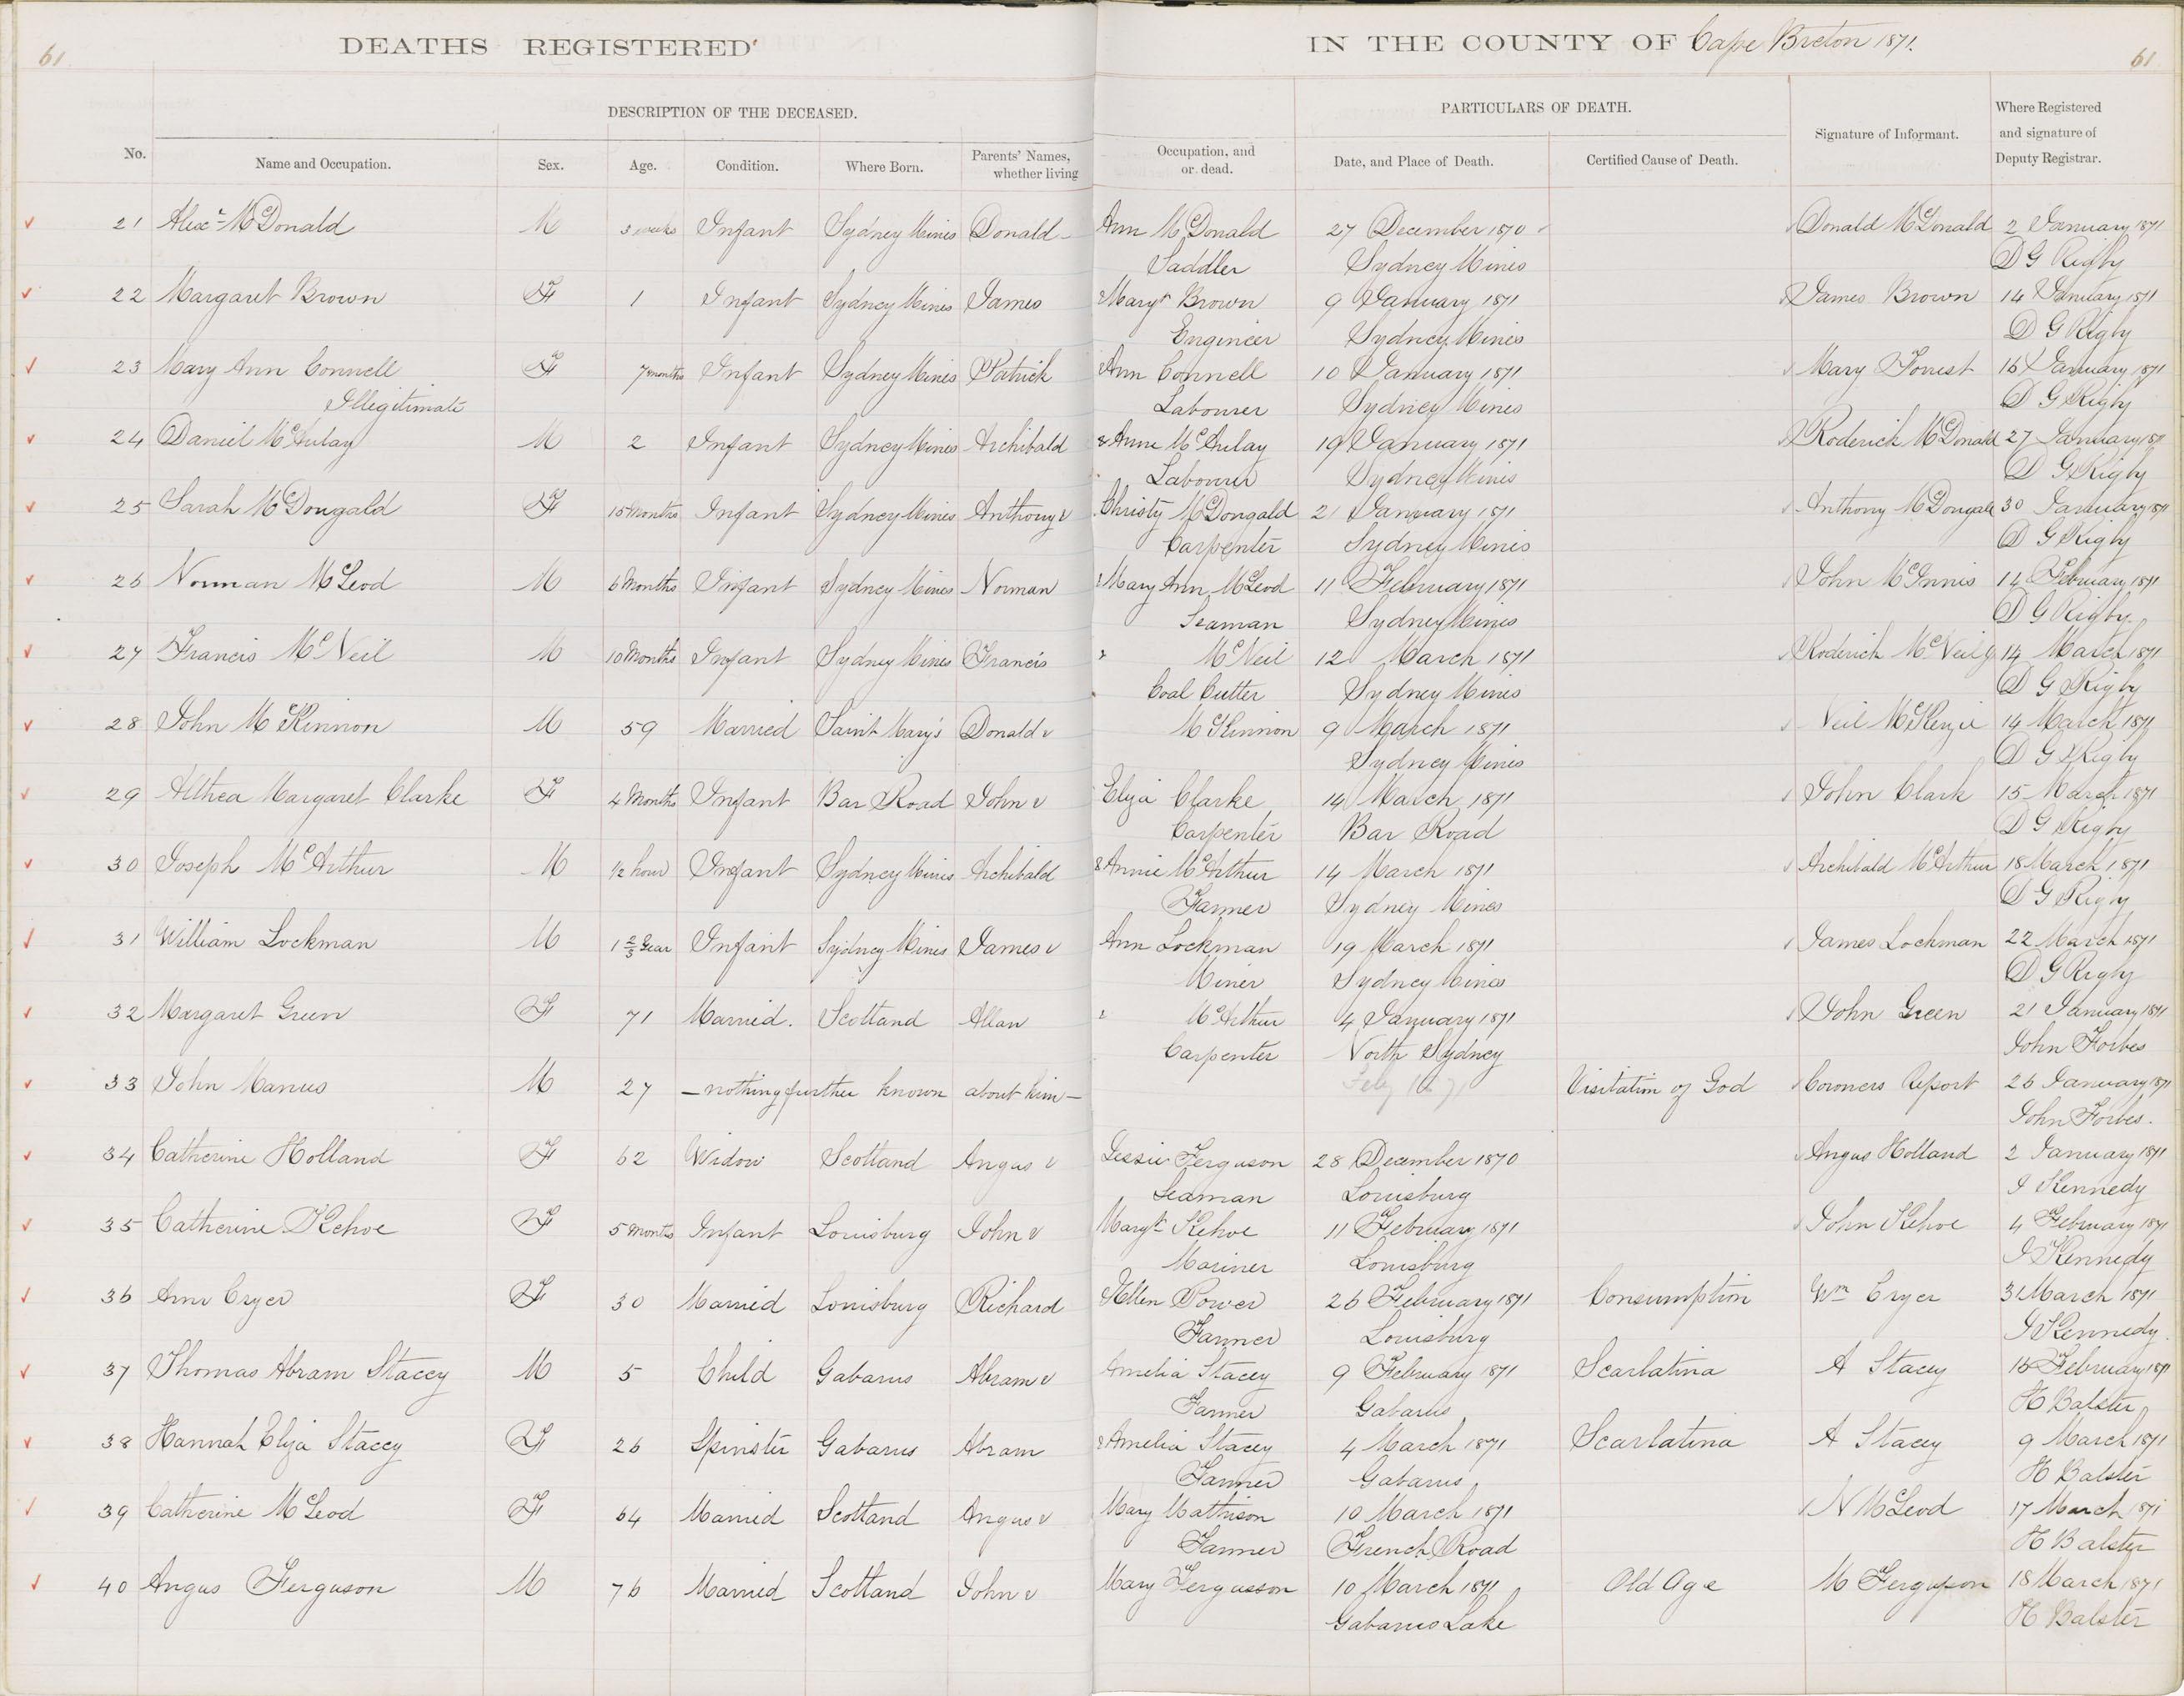 61
DEATHS REGISTERED
IN THE COUNTY OF Cape Breton 1871.
61
DESCRIPTION OF THE DECEASED.
PARTICULARS OF DEATH.
No. Name and Occupation. Sex. Age. Condition. Where Born. Parents' Names, whether living Occupation, and or dead. Date, and Place of Death. Certified Cause of Death. Signature of Informant. Where Registered and signature of Deputy Registrar.
21 Alexr McDonald M 3 weeks Infant Sydney Mines Donald Ann McDonald 27 December 1870 Donald McDonald 2 January 1871
Saddler Sydney Mines D G Rigby
22 Margaret Brown F 1 Infant Sydney Mines James & Margt Brown 9 January 1871 James Brown 14 January 1871
Engineer Sydney Mines D G Rigby
23 Mary Ann Connell F 7 months Infant Sydney Mines Patrick & Ann Connell 10 January 1871 Mary Forrest 16 January 1871
Illegitimate Labourer Sydney Mines D G Rigby
24 Daniel McAulay M 2 Infant Sydney Mines Archibald & Anne McAulay 19 January 1871 Roderick McDonald 27 January 1871
Labourer Sydney Mines D G Rigby
25 Sarah McDougald F 15 Months Infant Sydney Mines Anthony & Christy McDougald 21 January 1871 Anthony McDougald 30 January 1871
Carpenter Sydney Mines D G Rigby
26 Norman McLeod M 6 Months Infant Sydney Mines Norman & Mary Ann McLeod 11 February 1871 John McInnis 14 February 1871
Seaman Sydney Mines D G Rigby
27 Francis McNeil M 10 Months Infant Sydney Mines Francis & McNeil 12 March 1871 Roderick McNeil 14 March 1871
Coal Cutter Sydney Mines D G Rigby
28 John McKinnon M 59 Married Saint Mary's Donald & McKinnon 9 March 1871 Neil McKenzie 14 March 1871
Sydney Mines D G Rigby
29 Althea Margaret Clarke F 4 Months Infant Bar Road John & Eliza Clarke 14 March 1871 John Clark 15 March 1871
Carpenter Bar Road D G Rigby
30 Joseph McArthur M 1/2 hour Infant Sydney Mines Archibald & Annie McArthur 14 March 1871 Archibald McArthur 18 March 1871
Farmer Sydney Mines D G Rigby
31 William Lockman M 1 2/3 Year Infant Sydney Mines James & Ann Lockman 19 March 1871 James Lockman 22 March 1871
Miner Sydney Mines D G Rigby
32 Margaret Green F 71 Married. Scotland Allan & McArthur 4 January 1871 John Green 21 January 1871
Carpenter North Sydney John Forbes
33 John Manus M 27 — nothing further known about him — Visitation of God Coroners Report 26 January 1871
John Forbes.
34 Catherine Holland F 62 Widow Scotland Angus & Jessie Ferguson 28 December 1870 Angus Holland 2 January 1871
Seaman Louisburg J Kennedy
35 Catherine Kehoe F 5 Months Infant Louisburg John & Margt Kehoe 11 February 1871 John Kehoe 4 February 1871
Mariner Louisburg J Kennedy
36 Ann Cryer F 30 Married Louisburg Richard Ellen Power 26 February 1871 Consumption Wm Cryer 31 March 1871
Farmer Louisburg J Kennedy
37 Thomas Abram Stacey M 5 Child Gabarus Abram & Amelia Stacey 9 February 1871 Scarlatina A Stacey 16 February 1871
Farmer Gabarus H Balster
38 Hannah Eliza Stacey F 26 Spinster Gabarus Abram & Amelia Stacey 4 March 1871 Scarlatina A Stacey 9 March 1871
Farmer Gabarus H Balster
39 Catherine McLeod F 64 Married Scotland Angus & Mary Mathison 10 March 1871 N McLeod 17 March 1871
Farmer French Road H Balster
40 Angus Ferguson M 76 Married Scotland John & Mary Fergusson 10 March 1871 Old Age M Ferguson 18 March 1871
Gabarus Lake H Balster